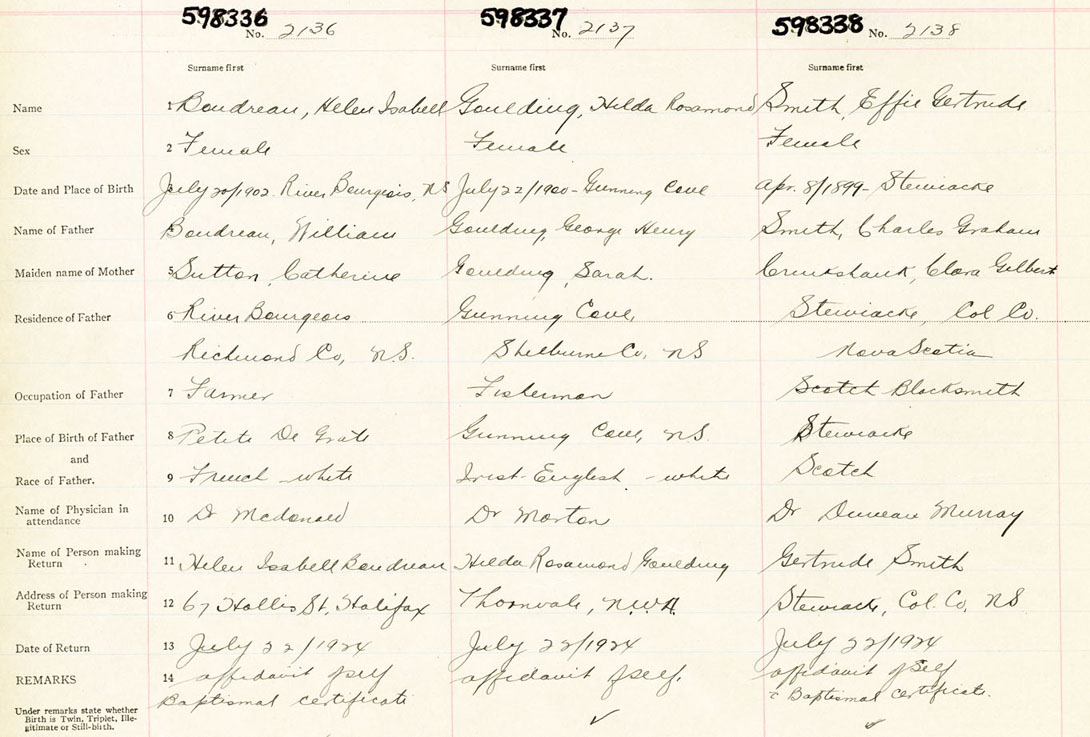 598336 No. 2136 598337 No. 2137 598338 No. 2138
Surname first Surname first Surname first
Name 1 Boudreau, Helen Isabell Goulding, Hilda Rosamond Smith, Effie Gertrude
Sex 2 Female Female Female
Date and Place of Birth July 20/1902. River Bourgeois, NS July 22/1900 - Gunning Cove Apr. 8/1899 - Stewiacke
Name of Father Boudreau, William Goulding, George Henry Smith, Charles Graham
Maiden name of Mother 5 Sutton, Catherine Goulding, Sarah. Cruikshank, Clara Gilbert
Residence of Father 6 River Bourgeois Gunning Cove, Stewiacke, Col Co.
Richmond Co, N.S. Shelburne Co, NS Nova Scotia
Occupation of Father 7 Farmer Fisherman Scotch Blacksmith
Place of Birth of Father 8 Petite De Grate Gunning Cove, NS. Stewiacke
and
Race of Father. 9 French - white Irish-English - white Scotch
Name of Physician in attendance 10 Dr McDonald Dr Morton Dr Duncan Murray
Name of Person making Return 11 Helen Isabell Boudreau Hilda Rosamond Goulding Gertrude Smith
Address of Person making Return 12 67 Hollis St, Halifax Thornvale, N.W.A. Stewiacke, Col. Co, NS
Date of Return 13 July 22/1924 July 22/1924 July 22/1924
REMARKS 14 affidavit of self affidavit of self. affidavit of self
Baptismal certificate Baptismal certificate.
Under remarks state whether
Birth is Twin, Triplet, Ille-
gitimate or Still-birth.